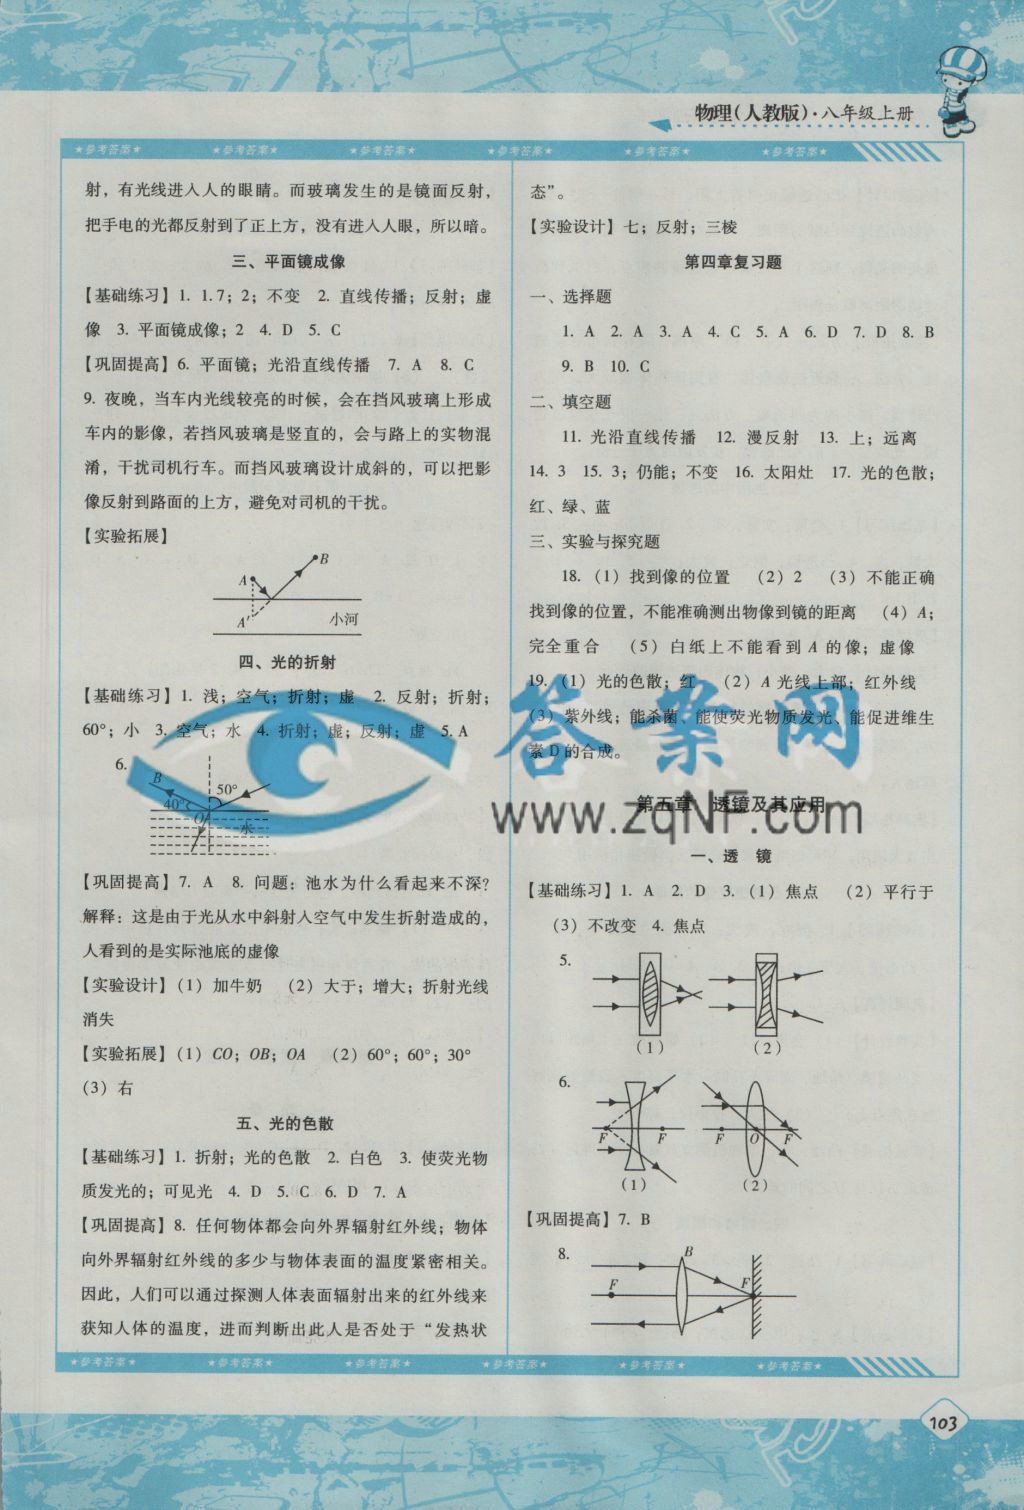 物理(人教版)·八年级上册
★参考答案★ ★参考答案★ ★参考答案★ ★参考答案★ ★参考答案★ ★参考答案★
射，有光线进入人的眼睛。而玻璃发生的是镜面反射，
把手电的光都反射到了正上方，没有进入人眼，所以暗。
三、平面镜成像
【基础练习】1. 1.7；2；不变 2. 直线传播；反射；虚
像 3. 平面镜成像；2 4. D 5. C
【巩固提高】6. 平面镜；光沿直线传播 7. A 8. C
9. 夜晚，当车内光线较亮的时候，会在挡风玻璃上形成
车内的影像，若挡风玻璃是竖直的，会与路上的实物混
淆，干扰司机行车。而挡风玻璃设计成斜的，可以把影
像反射到路面的上方，避免对司机的干扰。
【实验拓展】
B
A
A′ 小河
四、光的折射
【基础练习】1. 浅；空气；折射；虚 2. 反射；折射；
60°；小 3. 空气；水 4. 折射；虚；反射；虚 5. A
6.
B 50°
40°
O 水
【巩固提高】7. A 8. 问题：池水为什么看起来不深?
解释：这是由于光从水中斜射入空气中发生折射造成的，
人看到的是实际池底的虚像
【实验设计】(1) 加牛奶 (2) 大于；增大；折射光线
消失
【实验拓展】(1) CO；OB；OA (2) 60°；60°；30°
(3) 右
五、光的色散
【基础练习】1. 折射；光的色散 2. 白色 3. 使荧光物
质发光的；可见光 4. D 5. C 6. D 7. A
【巩固提高】8. 任何物体都会向外界辐射红外线；物体
向外界辐射红外线的多少与物体表面的温度紧密相关。
因此，人们可以通过探测人体表面辐射出来的红外线来
获知人体的温度，进而判断出此人是否处于“发热状
态”。
【实验设计】七；反射；三棱
第四章复习题
一、选择题
1. A 2. A 3. A 4. C 5. A 6. D 7. D 8. B
9. B 10. C
二、填空题
11. 光沿直线传播 12. 漫反射 13. 上；远离
14. 3 15. 3；仍能；不变 16. 太阳灶 17. 光的色散；
红、绿、蓝
三、实验与探究题
18. (1) 找到像的位置 (2) 2 (3) 不能正确
找到像的位置，不能准确测出物像到镜的距离 (4) A；
完全重合 (5) 白纸上不能看到 A 的像；虚像
19. (1) 光的色散；红 (2) A 光线上部；红外线
(3) 紫外线；能杀菌、能使荧光物质发光、能促进维生
素 D 的合成。
答案网
www.zqNF.com
第五章 透镜及其应用
一、透 镜
【基础练习】1. A 2. D 3. (1) 焦点 (2) 平行于
(3) 不改变 4. 焦点
5.
(1) (2)
6.
F F F O F
(1) (2)
【巩固提高】7. B
8.
B
F F
★参考答案★ ★参考答案★ ★参考答案★ ★参考答案★ ★参考答案★ ★参考答案★
103